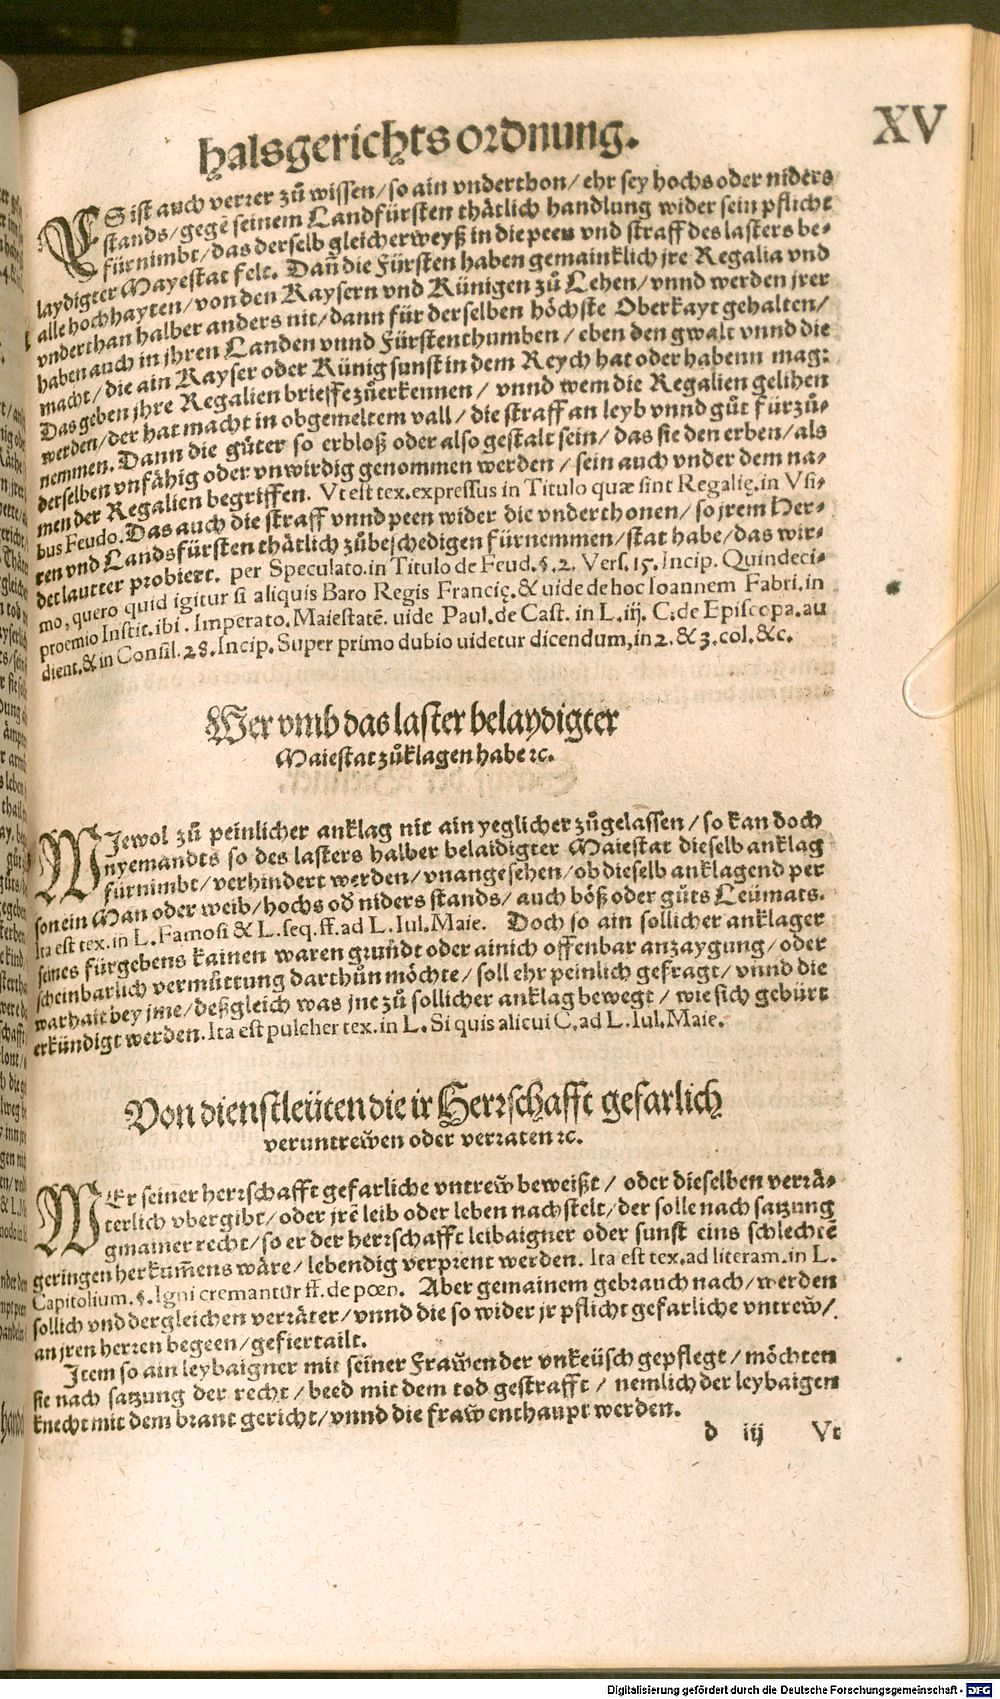 halsgerichts ordnung. XV
ES ist auch verrer zů wissen / so ain vnderthon / ehr sey hochs oder niders
stands / gegē seinem Landfürsten thätlich handlung wider sein pflicht
fürnimbt / das derselb gleicherweyß in die peen vnd straff des lasters be-
laydigter Mayestat felt. Dañ die Fürsten haben gemainklich jre Regalia vnd
alle hochhayten / von den Kaysern vnd Künigen zů Lehen / vnnd werden jrer
vnderthan halber anders nit / dann für derselben höchste Oberkayt gehalten /
haben auch in jhren Landen vnnd Fürstenthumben / eben den gwalt vnnd die
macht / die ain Kayser oder Künig sunst in dem Reych hat oder habenn mag:
Das geben jhre Regalien brieffe zůerkennen / vnnd wem die Regalien gelihen
werden / der hat macht in obgemeltem vall / die straff an leyb vnnd gůt fürzů-
nemmen. Dann die gůter so erbloß oder also gestalt sein / das sie den erben / als
derselben vnfähig oder vnwirdig genommen werden / sein auch vnder dem na-
men der Regalien begriffen. Vt est tex. expressus in Titulo quæ sint Regalię. in Vsi-
bus Feudo. Das auch die straff vnnd peen wider die vnderthonen / so jrem Her-
ren vnd Landsfürsten thätlich zůbeschedigen fürnemmen / stat habe / das wir-
det lautter probiert. per Speculato. in Titulo de Feud. §. 2. Vers. 15. Incip. Quindeci-
mo, quero quid igitur si aliquis Baro Regis Francię. & uide de hoc Ioannem Fabri. in
proemio Instit. ibi. Imperato. Maiestatē. uide Paul. de Cast. in L. iij. C. de Episcopa. au
dient. & in Consil. 28. Incip. Super primo dubio uidetur dicendum, in 2. & 3. col. &c.
Wer vmb das laster belaydigter
Maiestat zůklagen habe ꝛc.
WJewol zů peinlicher anklag nit ain yeglicher zůgelassen / so kan doch
nyemandts so des lasters halber belaidigter Maiestat dieselb anklag
fürnimbt / verhindert werden / vnangesehen / ob dieselb anklagend per
son ein Man oder weib / hochs od̄ niders stands / auch böß oder gůts Leümats.
Ita est tex. in L. Famosi & L. seq. ff. ad L. Iul. Maie. Doch so ain sollicher anklager
seines fürgebens kainen waren grundt oder ainich offenbar anzaygung / oder
scheinbarlich vermůttung darthůn möchte / soll ehr peinlich gefragt / vnnd die
warhait bey jme / deßgleich was jne zů sollicher anklag bewegt / wie sich gebürt
erkündigt werden. Ita est pulcher tex. in L. Si quis alicui C. ad L. Iul. Maie.
Von dienstleüten die ir Herrschafft gefarlich
veruntrew̌en oder verraten ꝛc.
WEr seiner herrschafft gefarliche vntrew̌ beweißt / oder dieselben verrä-
terlich vbergibt / oder jrē leib oder leben nachstelt / der solle nach satzung
gmainer recht / so er der herrschafft leibaigner oder sunst eins schlechtē
geringen herkum̄ens wäre / lebendig verprent werden. Ita est tex. ad literam. in L.
Capitolium. §. Igni cremantur ff. de pœn. Aber gemainem gebrauch nach / werden
sollich vnd dergleichen verräter / vnnd die so wider jr pflicht gefarliche vntrew̌ /
an jren herren begeen / gefiertailt.
Jtem so ain leybaigner mit seiner Fraw̌en der vnkeüsch gepflegt / möchten
sie nach satzung der recht / beed mit dem tod gestrafft / nemlich der leybaigen
knecht mit dem brant gericht / vnnd die fraw̌ enthaupt werden.
d iij Vt
Digitalisierung gefördert durch die Deutsche Forschungsgemeinschaft - DFG